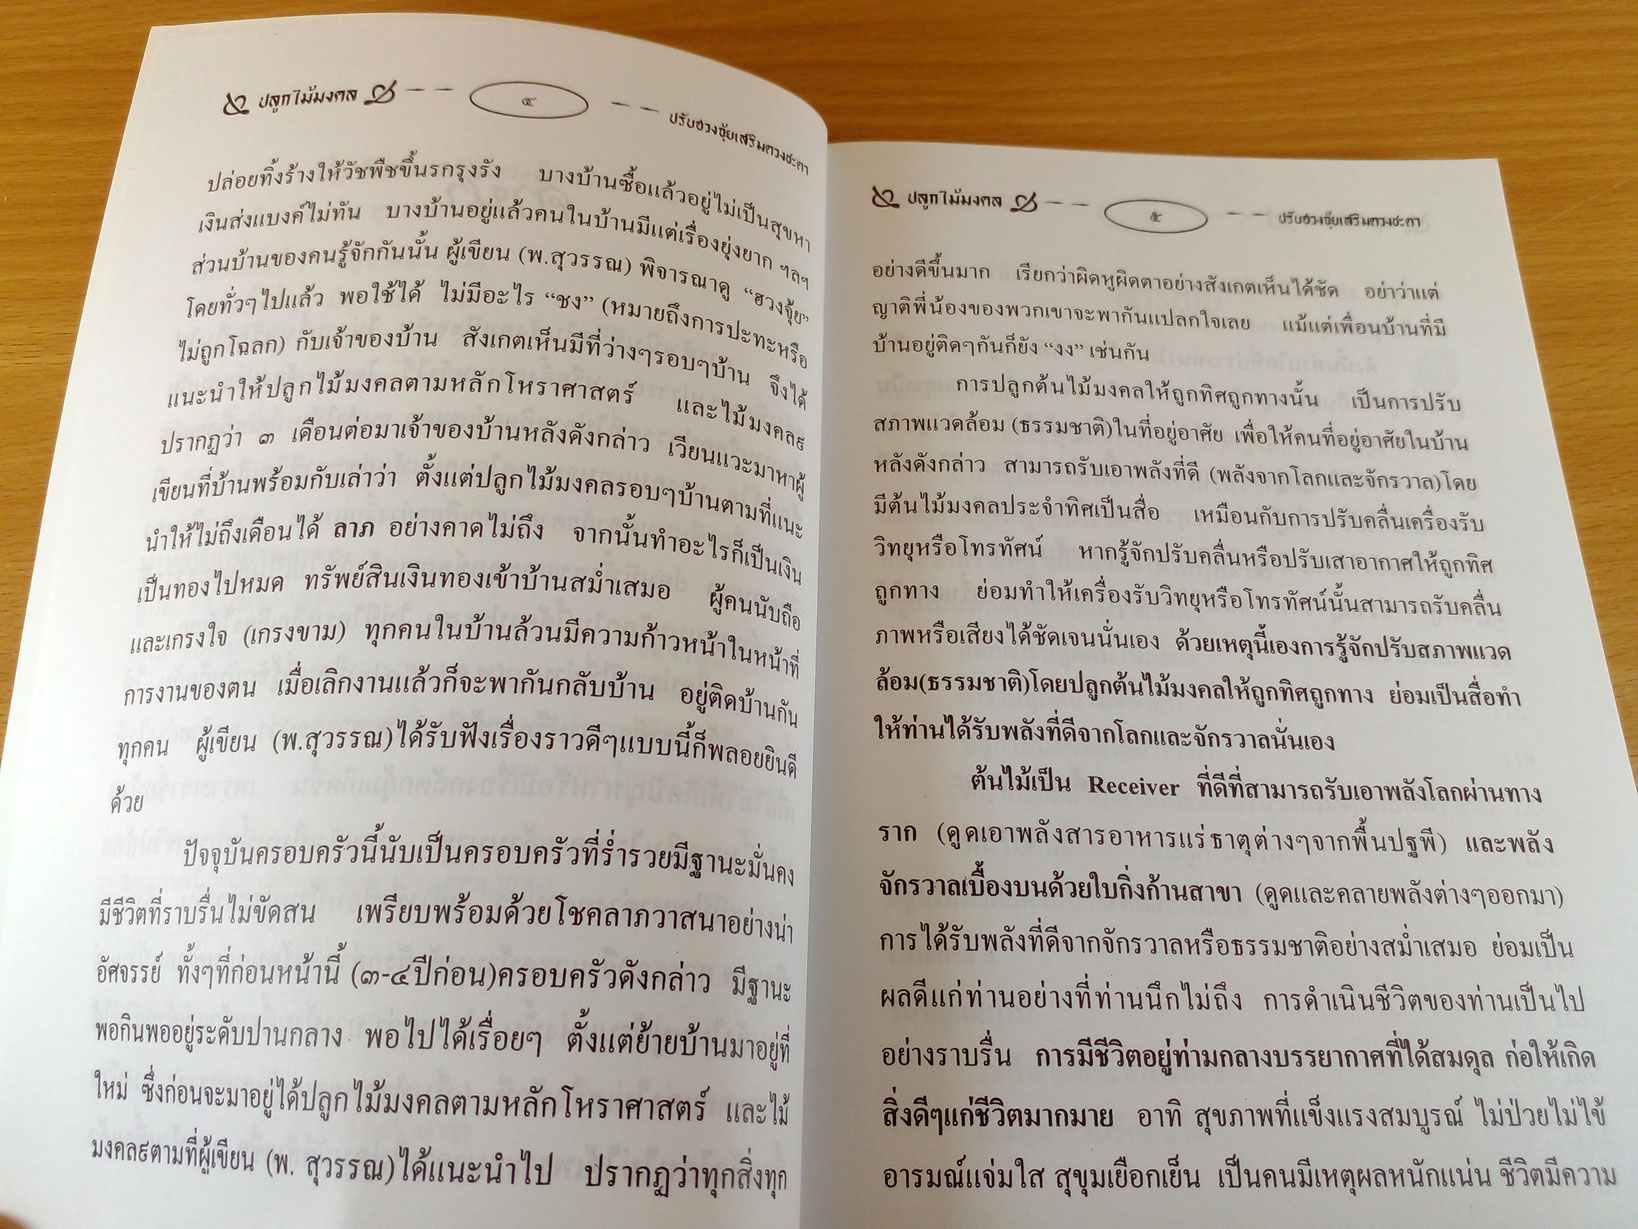 ปลูกไม้มงคล
๔
ปรับฮวงจุ้ยเสริมดวงชะตา
ปล่อยทิ้งร้างให้วัชพืชขึ้นรกรุงรัง บางบ้านซื้อแล้วอยู่ไม่เป็นสุขหา
เงินส่งแบงค์ไม่ทัน บางบ้านอยู่แล้วคนในบ้านมีแต่เรื่องยุ่งยาก ฯลฯ
ส่วนบ้านของคนรู้จักกันนั้น ผู้เขียน (พ.สุวรรณ) พิจารณาดู “ฮวงจุ้ย”
โดยทั่วๆไปแล้ว พอใช้ได้ ไม่มีอะไร “ชง” (หมายถึงการปะทะหรือ
ไม่ถูกโฉลก) กับเจ้าของบ้าน สังเกตเห็นมีที่ว่างๆรอบๆบ้าน จึงได้
แนะนำให้ปลูกไม้มงคลตามหลักโหราศาสตร์ และไม้มงคล๙
ปรากฏว่า ๓ เดือนต่อมาเจ้าของบ้านหลังดังกล่าว เวียนแวะมาหาผู้
เขียนที่บ้านพร้อมกับเล่าว่า ตั้งแต่ปลูกไม้มงคลรอบๆบ้านตามที่แนะ
นำให้ไม่ถึงเดือนได้ ลาภ อย่างคาดไม่ถึง จากนั้นทำอะไรก็เป็นเงิน
เป็นทองไปหมด ทรัพย์สินเงินทองเข้าบ้านสม่ำเสมอ ผู้คนนับถือ
และเกรงใจ (เกรงขาม) ทุกคนในบ้านล้วนมีความก้าวหน้าในหน้าที่
การงานของตน เมื่อเลิกงานแล้วก็จะพากันกลับบ้าน อยู่ติดบ้านกัน
ทุกคน ผู้เขียน (พ.สุวรรณ)ได้รับฟังเรื่องราวดีๆแบบนี้ก็พลอยยินดี
ด้วย
ปัจจุบันครอบครัวนี้นับเป็นครอบครัวที่ร่ำรวยมีฐานะมั่นคง
มีชีวิตที่ราบรื่นไม่ขัดสน เพรียบพร้อมด้วยโชคลาภวาสนาอย่างน่า
อัศจรรย์ ทั้งๆที่ก่อนหน้านี้ (๓-๔ปีก่อน)ครอบครัวดังกล่าว มีฐานะ
พอกินพออยู่ระดับปานกลาง พอไปได้เรื่อยๆ ตั้งแต่ย้ายบ้านมาอยู่ที่
ใหม่ ซึ่งก่อนจะมาอยู่ได้ปลูกไม้มงคลตามหลักโหราศาสตร์ และไม้
มงคล๙ตามที่ผู้เขียน (พ. สุวรรณ)ได้แนะนำไป ปรากฏว่าทุกสิ่งทุก
ปลูกไม้มงคล
๕
ปรับฮวงจุ้ยเสริมดวงชะตา
อย่างดีขึ้นมาก เรียกว่าผิดหูผิดตาอย่างสังเกตเห็นได้ชัด อย่าว่าแต่
ญาติพี่น้องของพวกเขาจะพากันแปลกใจเลย แม้แต่เพื่อนบ้านที่มี
บ้านอยู่ติดๆกันก็ยัง “งง” เช่นกัน
การปลูกต้นไม้มงคลให้ถูกทิศถูกทางนั้น เป็นการปรับ
สภาพแวดล้อม (ธรรมชาติ)ในที่อยู่อาศัย เพื่อให้คนที่อยู่อาศัยในบ้าน
หลังดังกล่าว สามารถรับเอาพลังที่ดี (พลังจากโลกและจักรวาล)โดย
มีต้นไม้มงคลประจำทิศเป็นสื่อ เหมือนกับการปรับคลื่นเครื่องรับ
วิทยุหรือโทรทัศน์ หากรู้จักปรับคลื่นหรือปรับเสาอากาศให้ถูกทิศ
ถูกทาง ย่อมทำให้เครื่องรับวิทยุหรือโทรทัศน์นั้นสามารถรับคลื่น
ภาพหรือเสียงได้ชัดเจนนั่นเอง ด้วยเหตุนี้เองการรู้จักปรับสภาพแวด
ล้อม(ธรรมชาติ)โดยปลูกต้นไม้มงคลให้ถูกทิศถูกทาง ย่อมเป็นสื่อทำ
ให้ท่านได้รับพลังที่ดีจากโลกและจักรวาลนั่นเอง
ต้นไม้เป็น Receiver ที่ดีที่สามารถรับเอาพลังโลกผ่านทาง
ราก (ดูดเอาพลังสารอาหารแร่ธาตุต่างๆจากพื้นปฐพี) และพลัง
จักรวาลเบื้องบนด้วยใบกิ่งก้านสาขา (ดูดและคลายพลังต่างๆออกมา)
การได้รับพลังที่ดีจากจักรวาลหรือธรรมชาติอย่างสม่ำเสมอ ย่อมเป็น
ผลดีแก่ท่านอย่างที่ท่านนึกไม่ถึง การดำเนินชีวิตของท่านเป็นไป
อย่างราบรื่น การมีชีวิตอยู่ท่ามกลางบรรยากาศที่ได้สมดุล ก่อให้เกิด
สิ่งดีๆแก่ชีวิตมากมาย อาทิ สุขภาพที่แข็งแรงสมบูรณ์ ไม่ป่วยไม่ไข้
อารมณ์แจ่มใส สุขุมเยือกเย็น เป็นคนมีเหตุผลหนักแน่น ชีวิตมีความ